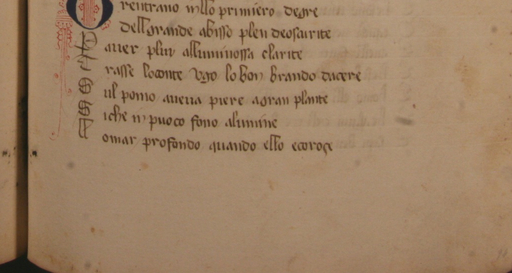 Or entrano nello primiero degre
dell grande abisso plen deoscurite
auer plur alluminossa clarite
rasse loconte Ugo lo bon brando dacere
ul pomo aueua piere agran plante
iche in puoco fono alumine
omar profondo quando ello ecoroçe